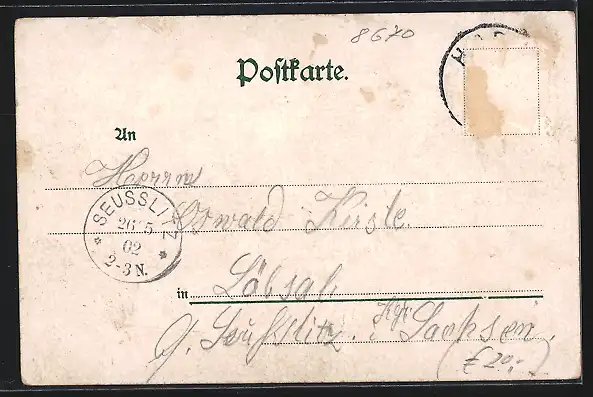 8670
Postkarte.
An
Herrn
SEUSSLITZ
26 5
02
2-3 N.
Oswald Kirste.
in Löbsal
Kgr. Sachsen.